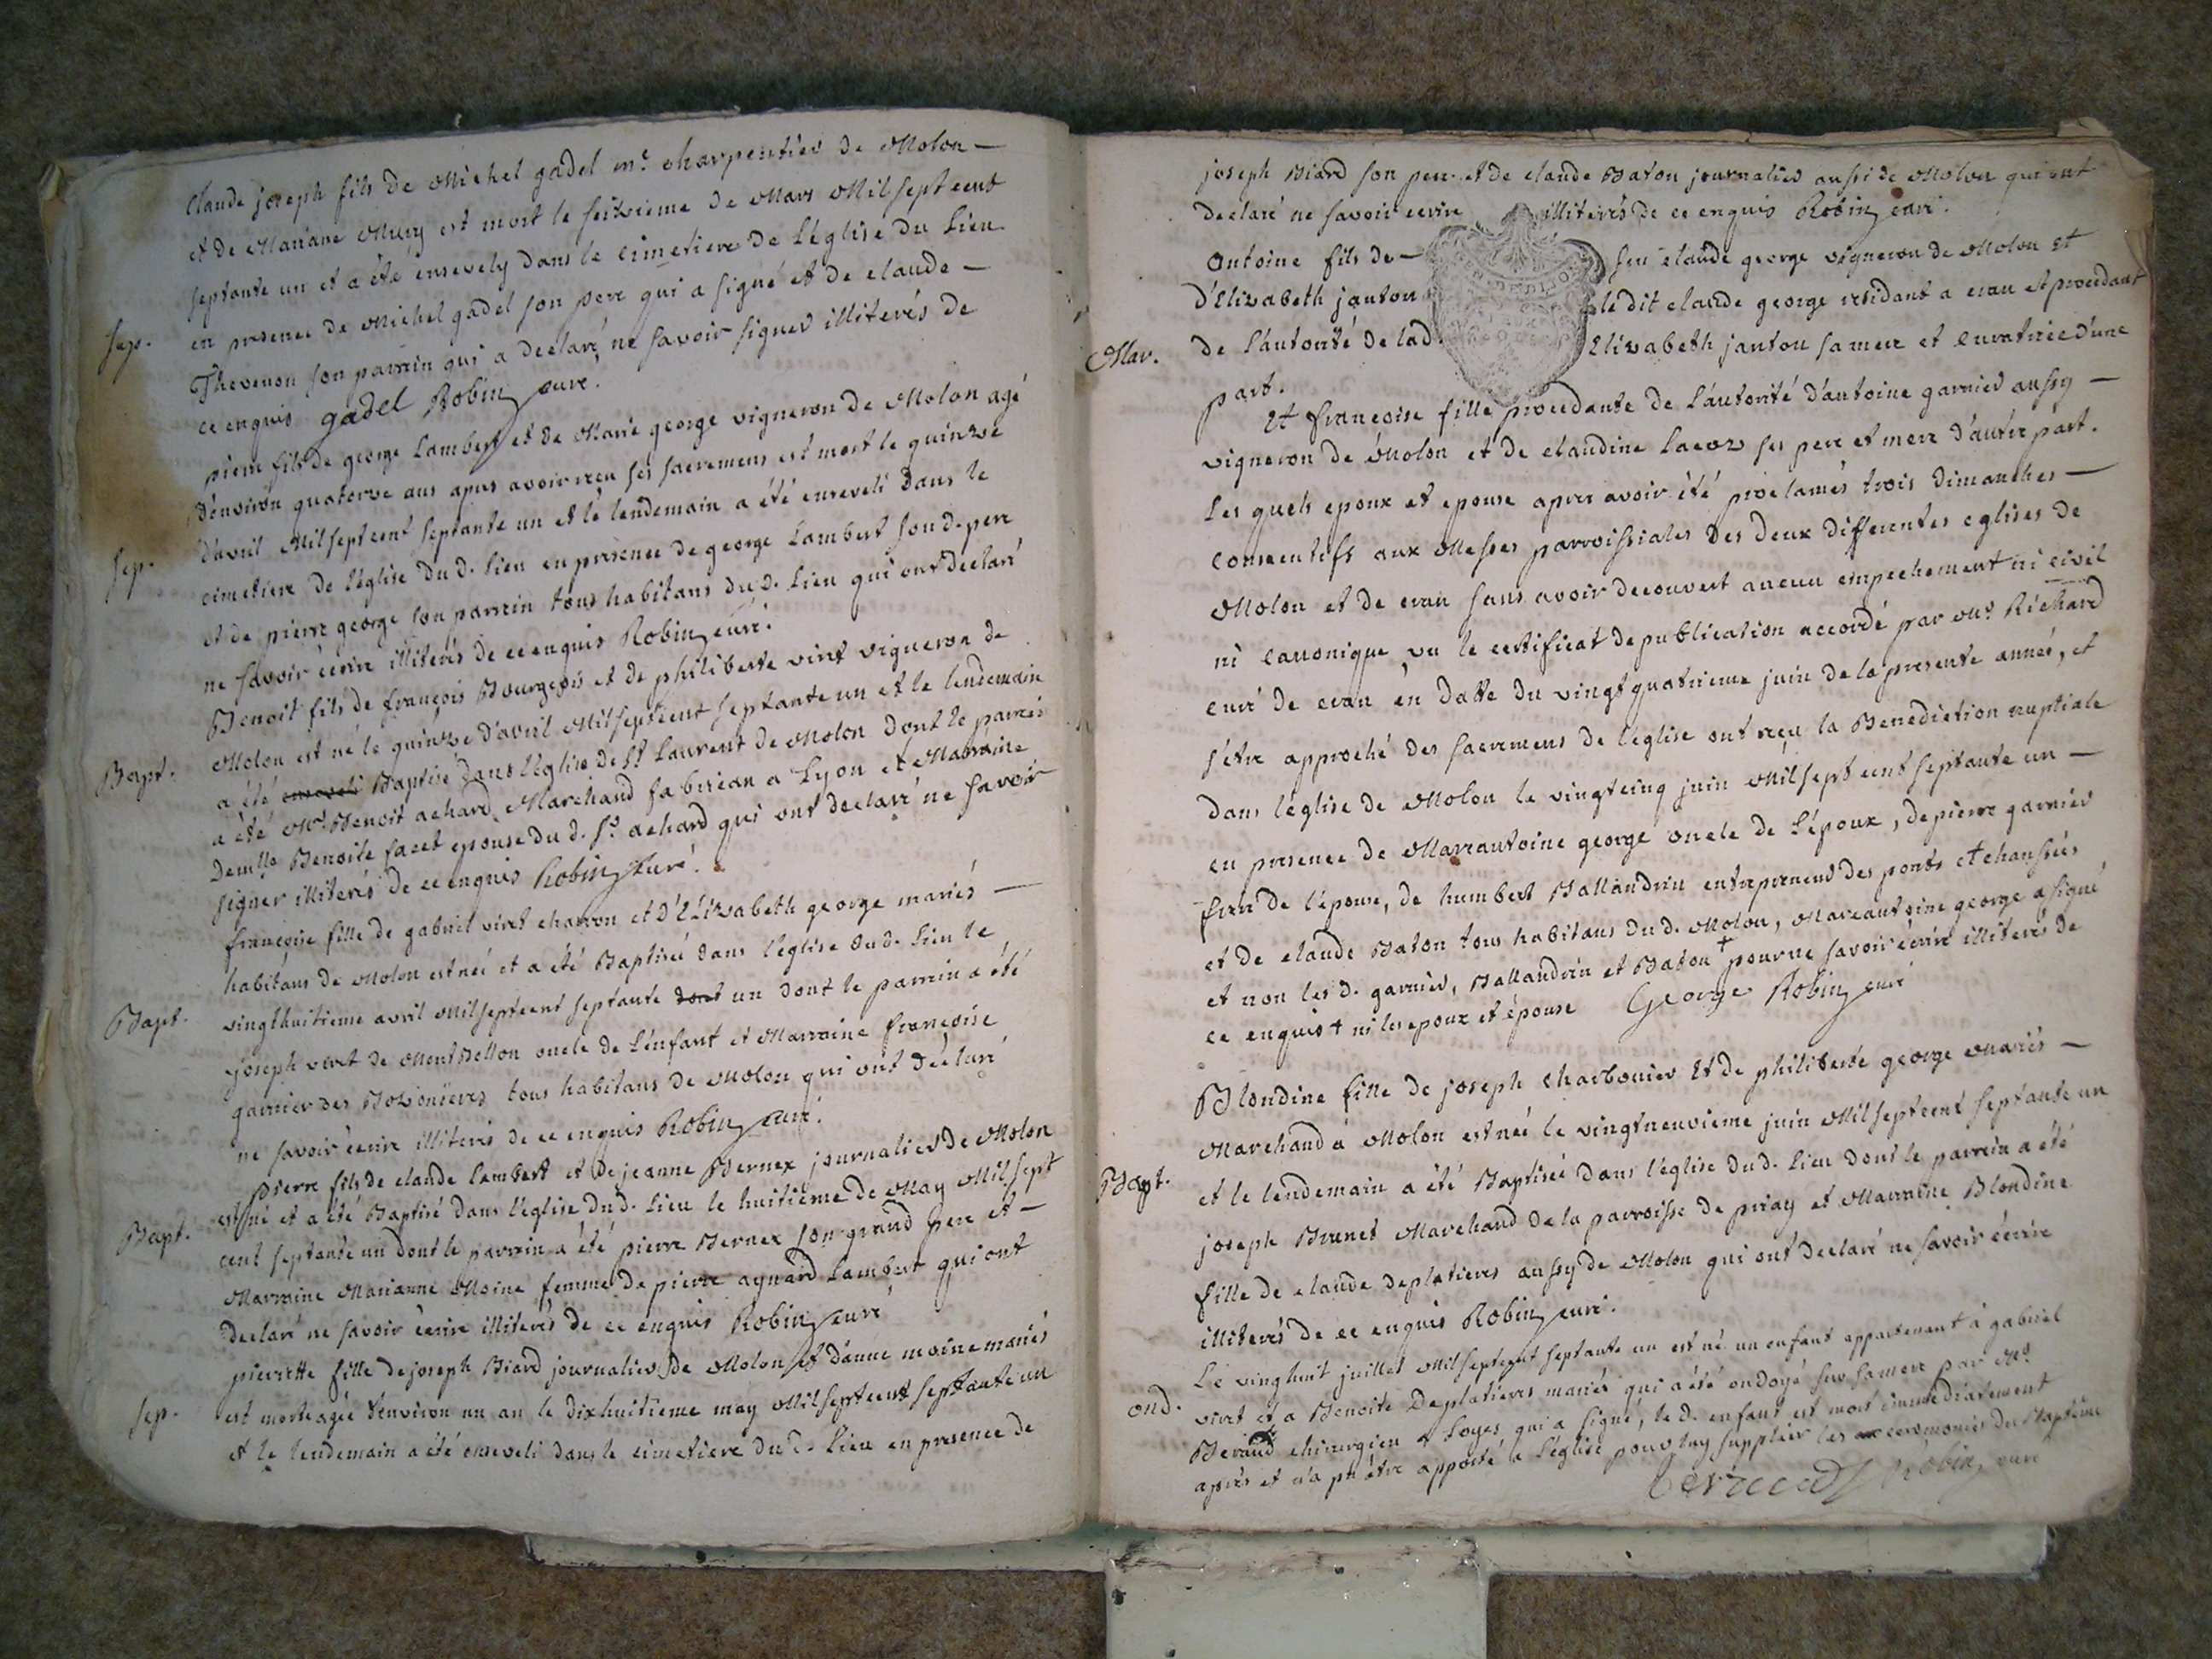 Claude joseph fils de Michel gadel m.e charpentier de Molon —
et de Mariane Mury est mort le seizieme de Mars Milsept cent
septante un et a été ensevely dans le cimetiere de L'église du Lieu
sep. en presence de Michel gadel son pere qui a signé et de claude —
Thevenon son parrein qui a declaré ne savoir signer illiterés de
ce enquis gadel Robin curé.
pierre fils de george Lambert et de Marie george vigneron de Molon agé
d'environ quatorze ans apres avoir reçu ses sacremens est mort le quinze
sep. d'avril Milsept cent septante un et le lendemain a été enseveli dans le
cimetiere de l'église du d. Lieu en presence de george Lambert son d. pere
et de pierre george son parrein tous habitans du d. Lieu qui ont declaré
ne savoir écrire illiterés de ce enquis Robin curé.
Benoit fils de françois Bourgeois et de philiberte viret vigneron de
Bapt. Molon est né le quinze d'avril Milseptcent septante un et le lendemain
a été enseveli Baptisé dans l'église de St Laurent de Molon dont le parrein
a été Mr. Benoit achard Marchand fabrican a Lyon et Marraine
Demlle Benoite facet epouse du d. Sr. achard qui ont declaré ne savoir
signer illiterés de ce enquis Robin Curé.
françoise fille de gabriel viret charron et d'Elizabeth george mariés —
habitans de Molon est née et a été Baptisée dans l'église du d. Lieu le
Bapt. vingthuitieme avril Milseptcent septante dont un dont le parrein a été
joseph viret de MontBellon oncle de L'enfant et Marraine françoise
garnier des tous habitans de Molon qui ont declaré
ne savoir écrire illiterés de ce enquis Robin curé.
pierre fils de claude Lambert et de jeanne Bernex journalier de Molon
Bapt. est né et a été Baptisé dans l'église du d. Lieu le huitieme de May Milsept
cent septante un dont le parrein a été pierre Bernex son grand pere et —
Marraine Marianne Moine femme de pierre aynard Lambert qui ont
declaré ne savoir écrire illiterés de ce enquis Robin curé
pierrette fille de joseph Biard journalier de Molon et d'anne moine mariés
sep. est morte agée d'environ un an le dixhuitieme may Milseptcent septante un
et le lendemain a été enseveli dans le cimetiere du d. Lieu en presence de
joseph Biard son pere et de claude Baton journalier aussi de Molon qui ont
declaré ne savoir ecrire illiterés de ce enquis Robin curé.
Antoine fils de — feu claude george vigneron de Molon et
d'Elizabeth janton le dit claude george residant a cran et procedant
Mar. de L'autorité de lad. Elizabeth janton sa mere et curatrice d'une
part.
Et françoise fille procedante de L'autorité d'antoine garnier aussy —
vigneron de Molon et de claudine Lacoz ses pere et mere d'autre part.
Les quels epoux et epouse apres avoir été proclamés trois dimanches —
consecutifs aux Messes parroissiales des deux differentes eglises de
Molon et de cran sans avoir decouvert aucun empechement ni civil
ni canonique vu le certificat de publication accordé par Mr. Richard
curé de cran en datte du vingtquatrieme juin de la presente année, et
s'etre approché des sacremens de l'église ont reçu la Benediction nuptiale
dans l'église de Molon le vingtcinq juin Milsept cent septante un —
en presence de Marcantoine george oncle de L'époux, de pierre garnier
frere de l'epouse, de humbert Ballandrin entrepreneur des ponts et chaussées
et de claude Baton tous habitans du d. Molon, Marcantoine george a signé
et non les d. garnier, Ballandrin et Baton + pour ne savoir écrire illiterés de
ce enquis + ni les epoux et épouse George Robin curé
Blondine fille de joseph charbonier Et de philiberte george Mariés —
Marchand a Molon est née le vingtneuvieme juin Milseptcent septante un
Bapt. et le lendemain a été Baptisée dans l'église du d. Lieu dont le parrein a été
joseph Brunet Marchand de la parroisse de priay et Marraine Blondine
fille de claude deplatieres aussy de Molon qui ont declaré ne savoir écrire
illiterés de ce enquis Robin curé.
Le vinghuit juillet Milseptcent septante un est né un enfant appartenant à gabriel
ond. viret et a Benoite Deplatieres mariés qui a été ondoyé sur sa mere par Mr
Beraud chirurgien a Loyes qui a signé, le d. enfant est mort immediatement
après et n'a pu être apporté a L'église pour luy supplier les ceremonies du Baptême
Beraud Robin curé